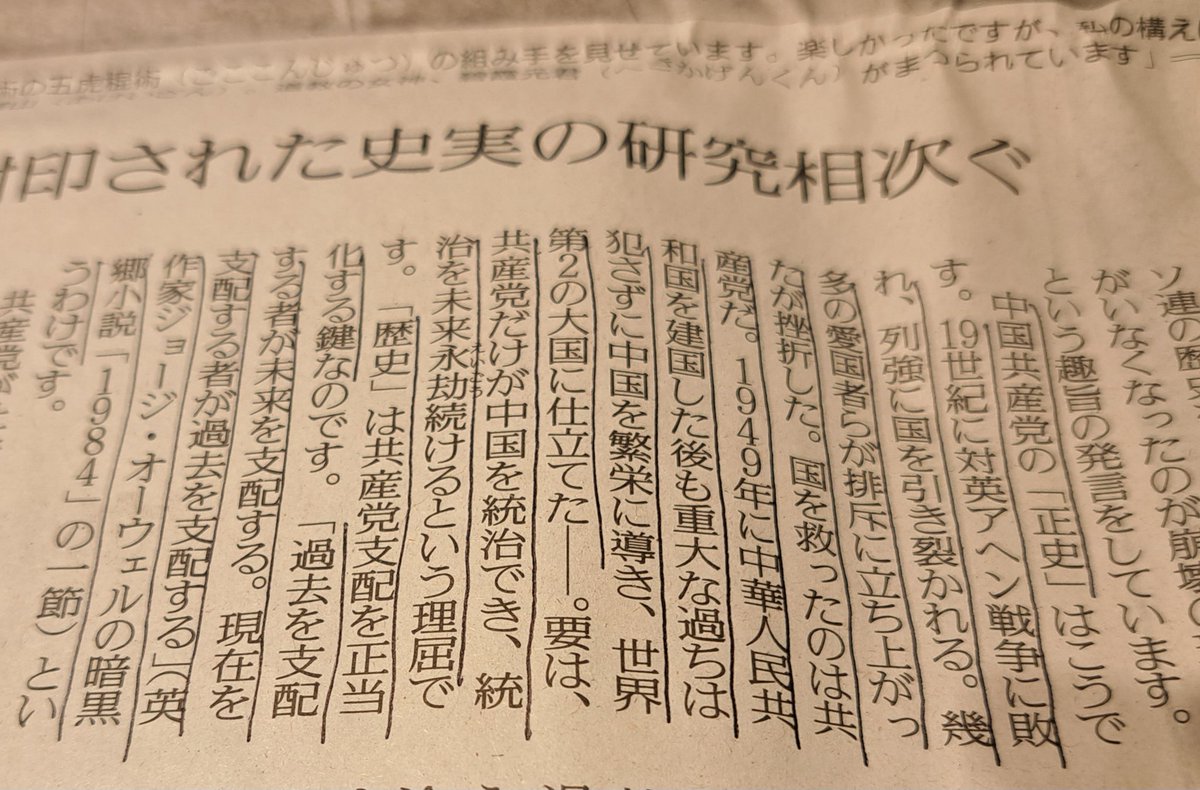 の組み手を見せています。楽しかったですが、私の構え
がま
られています」
印された史実の研究相次ぐ
ソ連の歴史
がいなくなったのが崩壊の
という趣旨の発言をしています。
中国共産党の「正史」はこうで
す。19世紀に対英アヘン戦争に敗
れ、列強に国を引き裂かれる。幾
多の愛国者らが排斥に立ち上がっ
たが挫折した。国を救ったのは共
産党だ。1949年に中華人民共
和国を建国した後も重大な過ちは
犯さずに中国を繁栄に導き、世界
第2の大国に仕立てた――。要は、
共産党だけが中国を統治でき、統
治を未来永劫続けるという理屈で
す。「歴史」は共産党支配を正当
化する鍵なのです。「過去を支配
する者が未来を支配する。現在を
支配する者が過去を支配する」(英
作家ジョージ・オーウェルの暗黒
郷小説「1984」の一節)とい
うわけです。
共産党が